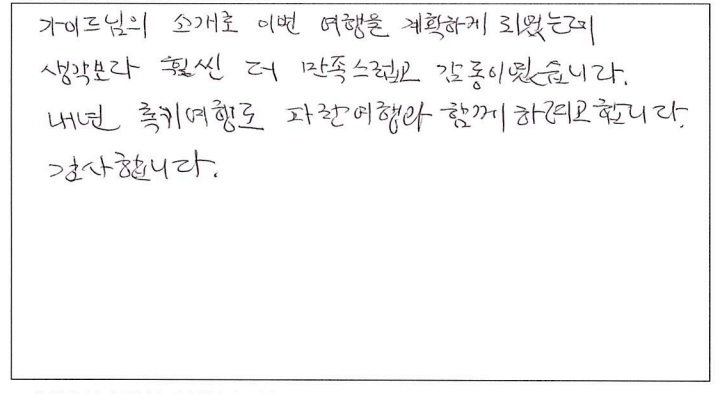 가이드님의 소개로 이번 여행을 계획하게 되었는데
생각보다 훨씬 더 만족스럽고 감동이었습니다.
내년 휴가여행도 파란여행과 함께 하려고 합니다.
감사합니다.